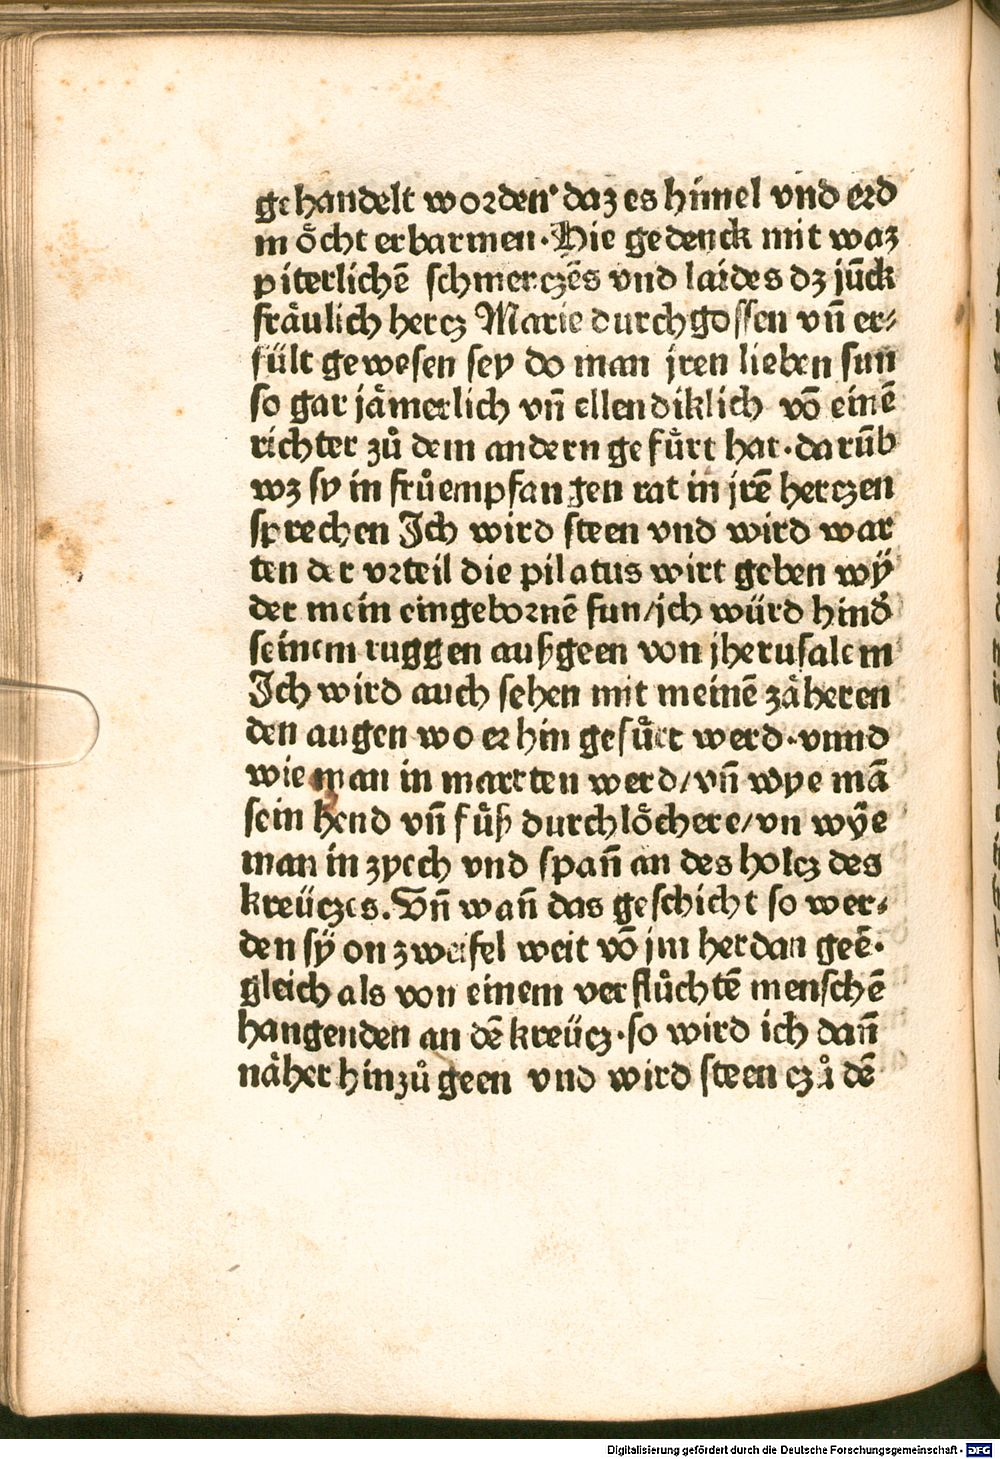 gehandelt worden daz es himel vnd erd
möcht erbarmen. Hie gedenck mit waz
piterlichē schmerczēs vnd laides dz jūck
fräulich hercz Marie durchgossen vn̄ er⸗
fült gewesen sey do man jren lieben sun
so gar jämerlich vn̄ ellendiklich vō einē
richter zů dem andern gefürt hat. darūb
wz sy in frůempfangen rat in jrē herczen
sprechen Ich wird steen vnd wird war
ten der vrteil die pilatus wirt geben wÿ
der mein eingebornē sun/ich würd hind̄
seinem ruggen außgeen von jherusalem
Ich wird auch sehen mit meinē zäheren
den augen wo er hin gefürt werd. vnnd
wie man in martten werd/vn̄ wye mā
sein hend vn̄ fůß durchlöchere/vn wÿe
man in zyech vnd span̄ an des holcz des
kreüczes. Vn̄ wan̄ das geschicht so wer⸗
den sÿ on zweifel weit vō jm herdan geē.
gleich als von einem verflůchtē menschē
hangenden an dē kreücz. so wird ich dan̄
näher hinzů geen vnd wird steen czů dē
Digitalisierung gefördert durch die Deutsche Forschungsgemeinschaft - DFG